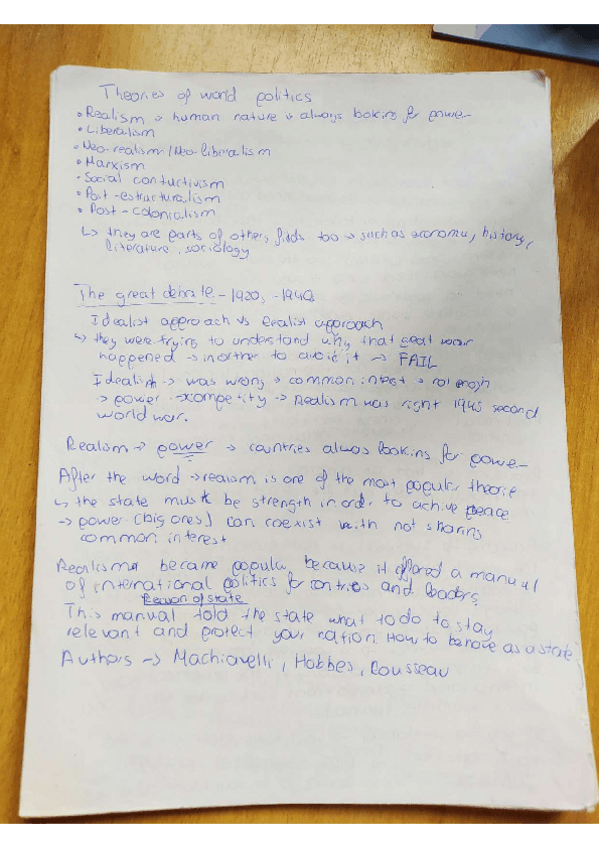 Theories of world politics
• Realism → human nature is always looking for power
• Liberalism
• Neo-realism/Neo-liberalism
• Marxism
• Social contuctivism
• Post-estructuralism
• Post-colonialism
↳ they are parts of others fields too → such as economy, history,
literature, sociology
The great debate - 1920s - 1940s
Idealist approach vs Realist approach
↳ they were trying to understand why that great war
happened → in order to avoid it → FAIL
Idealism → was wrong → common → not enough
→ power → → Realism was right 1945 second
world war.
Realism → power → countries always looking for power
After the word → realism is one of the most popular theorie
↳ the state must be strength in order to achive peace
→ power (big ones) can coexist with not sharing
common interest
Realisma became popular, because it offered a manual
of international politics for contries and leaders,
Reason of state
This manual told the state what to do to stay
relevant and protect your nation. How to behave as a state
Authors → Machiavelli, Hobbes, Rousseau